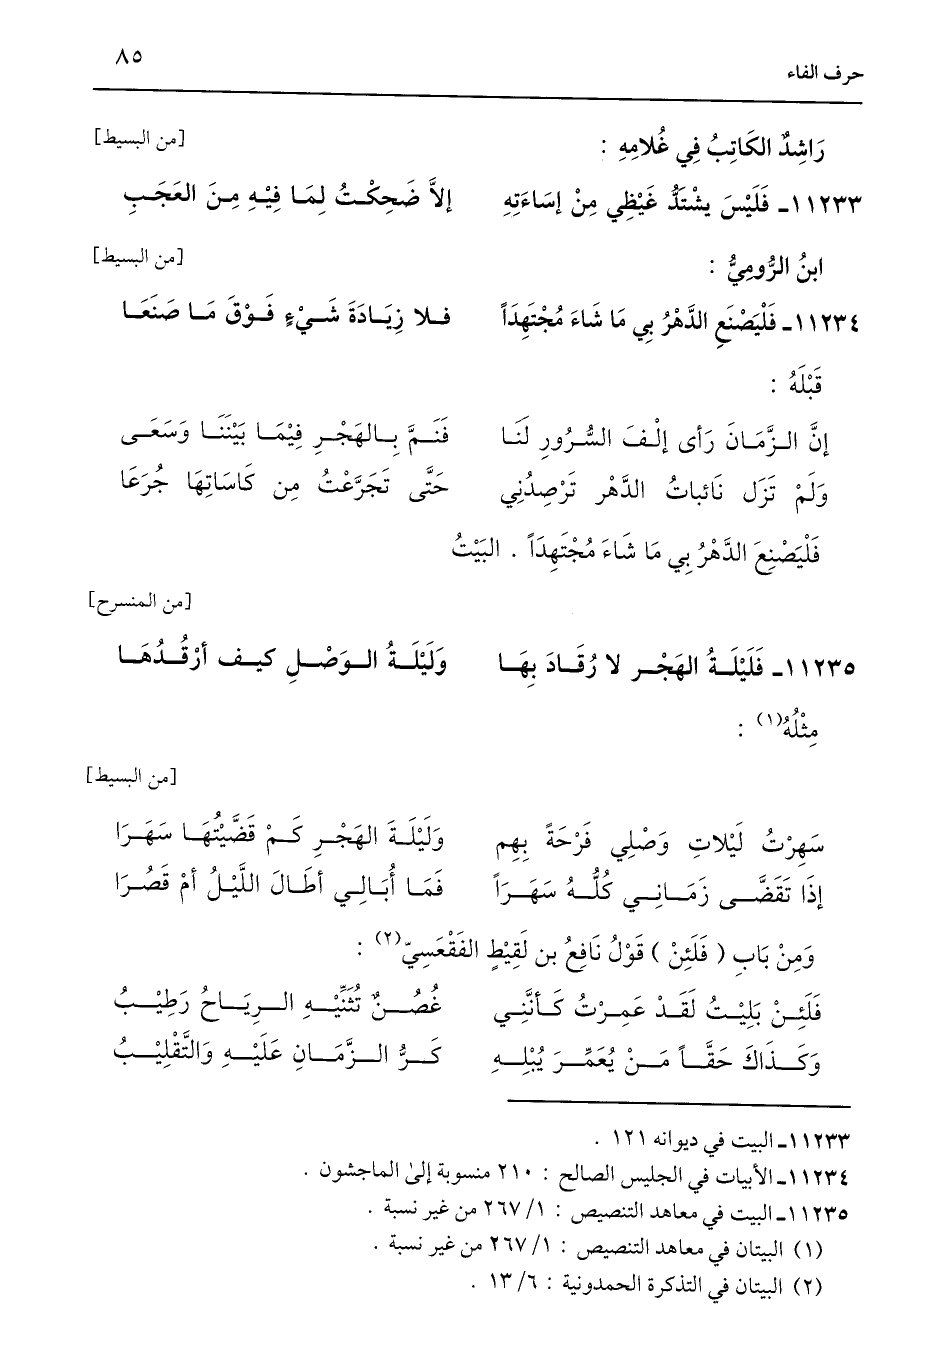 حرف الفاء ٨٥
رَاشِدٌ الكَاتِبُ فِي غُلامِهِ : [من البسيط]
١١٢٣٣ـ فَلَيْسَ يشْتَدُّ غَيْظِي مِنْ إسَاءَتِهِ إلاَّ ضَحِكْتُ لِمَا فِيْهِ مِنَ العَجَبِ
ابنُ الرُّومِيُّ : [من البسيط]
١١٢٣٤ـ فَلْيَصْنَعِ الدَّهْرُ بِي مَا شَاءَ مُجْتَهِدَاً فلا زِيَادَةَ شَيْءٍ فَوْقَ مَا صَنَعَا
قَبْلَهُ :
إنَّ الزَّمَانَ رَأى إلْفَ السُّرُورِ لَنَا فَنَمَّ بِالهَجْرِ فِيْمَا بَيْنَنَا وَسَعَى
وَلَمْ تَزَل نَائباتُ الدَّهْر تَرْصِدُنِي حَتَّى تَجَرَّعْتُ مِن كَاسَاتِهَا جُرَعَا
فَلْيَصْنِعَ الدَّهْرُ بِي مَا شَاءَ مُجْتَهِدَاً . البَيْتُ
[من المنسرح]
١١٢٣٥ـ فَلَيْلَةُ الهَجْر لا رُقَادَ بِهَا وَلَيْلَةُ الوَصْلِ كيف أرْقُدُهَا
مِثْلُهُ(١) :
[من البسيط]
سَهِرْتُ لَيْلاتِ وَصْلِي فَرْحَةً بِهِم وَلَيْلَةَ الهَجْرِ كَمْ قَضَّيْتُهَا سَهَرَا
إذَا تَقَضَّى زَمَانِي كُلُّهُ سَهَرَاً فَمَا أُبَالِي أطَالَ اللَّيْلُ أمْ قَصُرَا
وَمِنْ بَابِ ( فَلَئِنْ ) قَوْلُ نَافِعُ بن لَقِيْطٍ الفَقْعَسِيّ(٢) :
فَلَئِنْ بَلِيْتُ لَقَدْ عَمِرْتُ كَأنَّنِي غُصُنٌ تُثَنِّيْهِ الرِيَاحُ رَطِيْبُ
وَكَذَاكَ حَقَّاً مَنْ يُعَمِّرَ يُبْلِهِ كَرُّ الزَّمَانِ عَلَيْهِ وَالتَّقْلِيْبُ
١١٢٣٣ـ البيت في ديوانه ١٢١ .
١١٢٣٤ـ الأبيات في الجليس الصالح : ٢١٠ منسوبة إلىٰ الماجشون .
١١٢٣٥ـ البيت في معاهد التنصيص : ١/ ٢٦٧ من غير نسبة .
(١) البيتان في معاهد التنصيص : ١/ ٢٦٧ من غير نسبة .
(٢) البيتان في التذكرة الحمدونية : ٦/ ١٣ .